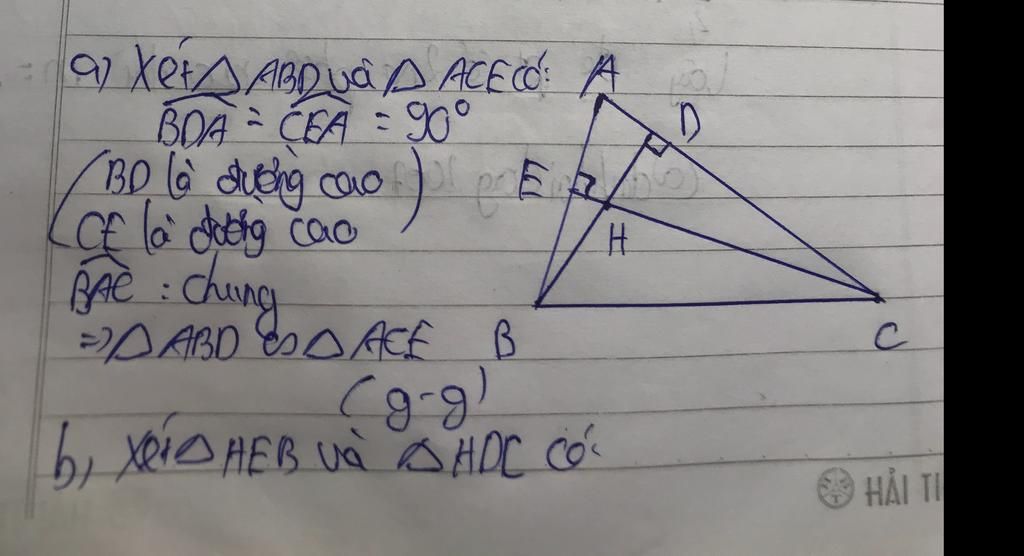 a) Xét △ ABD và △ ACE có:
BDA = CEA = 90°
(BD là đường cao
CE là đường cao)
BAC : chung
=> △ ABD ∽ △ ACE
(g-g)
b, Xét △ HEB và △ HDC có:
A
D
E
H
B
C
HẢI TI